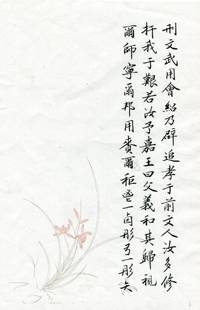 刑文武用會紹乃辟追孝于前文人汝多修
扞我于艱若汝予嘉王曰父義和其歸視
爾師寧爾邦用賚爾秬鬯一卣彤弓一彤矢